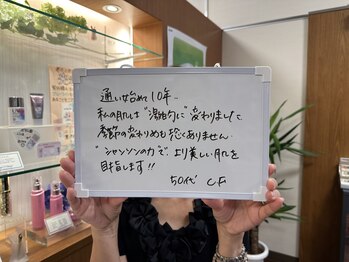 通い始めて10年。
私の肌は"激的に"変わりました
季節の変わりめも恐くありません。
"シャンソンの力で"より美しい肌を
目指します!!
50代 C.F